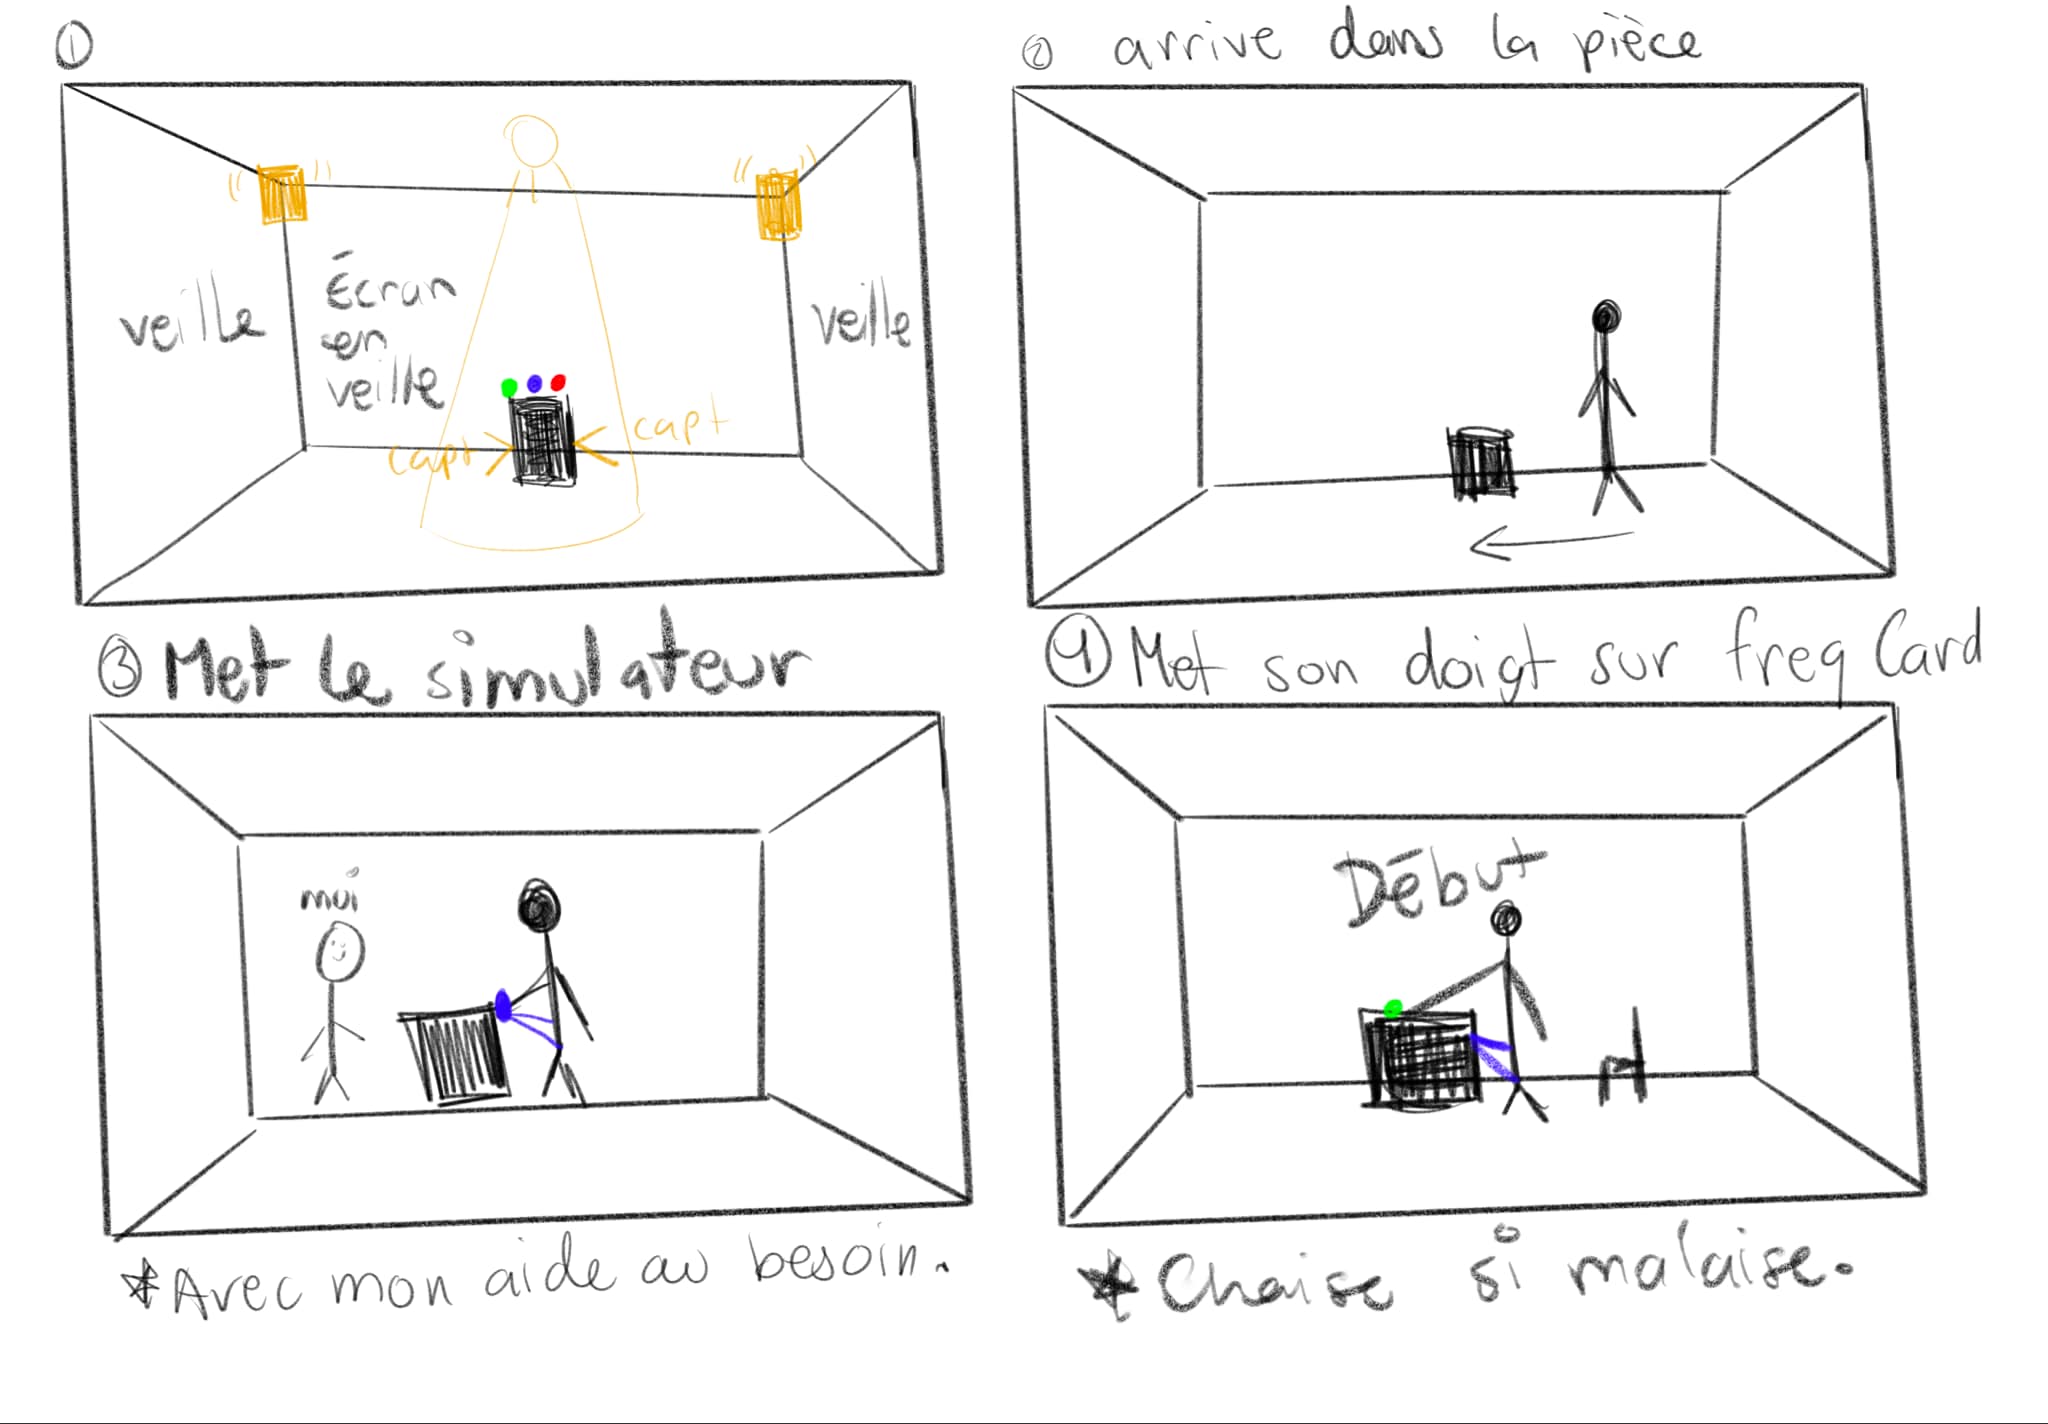 ①
veille
Écran
en
veille
veille
capt
capt
② arrive dans la pièce
③ Met le simulateur
moi
*Avec mon aide au besoin.
④ Met son doigt sur freq Card
Début
*Chaise si malaise.